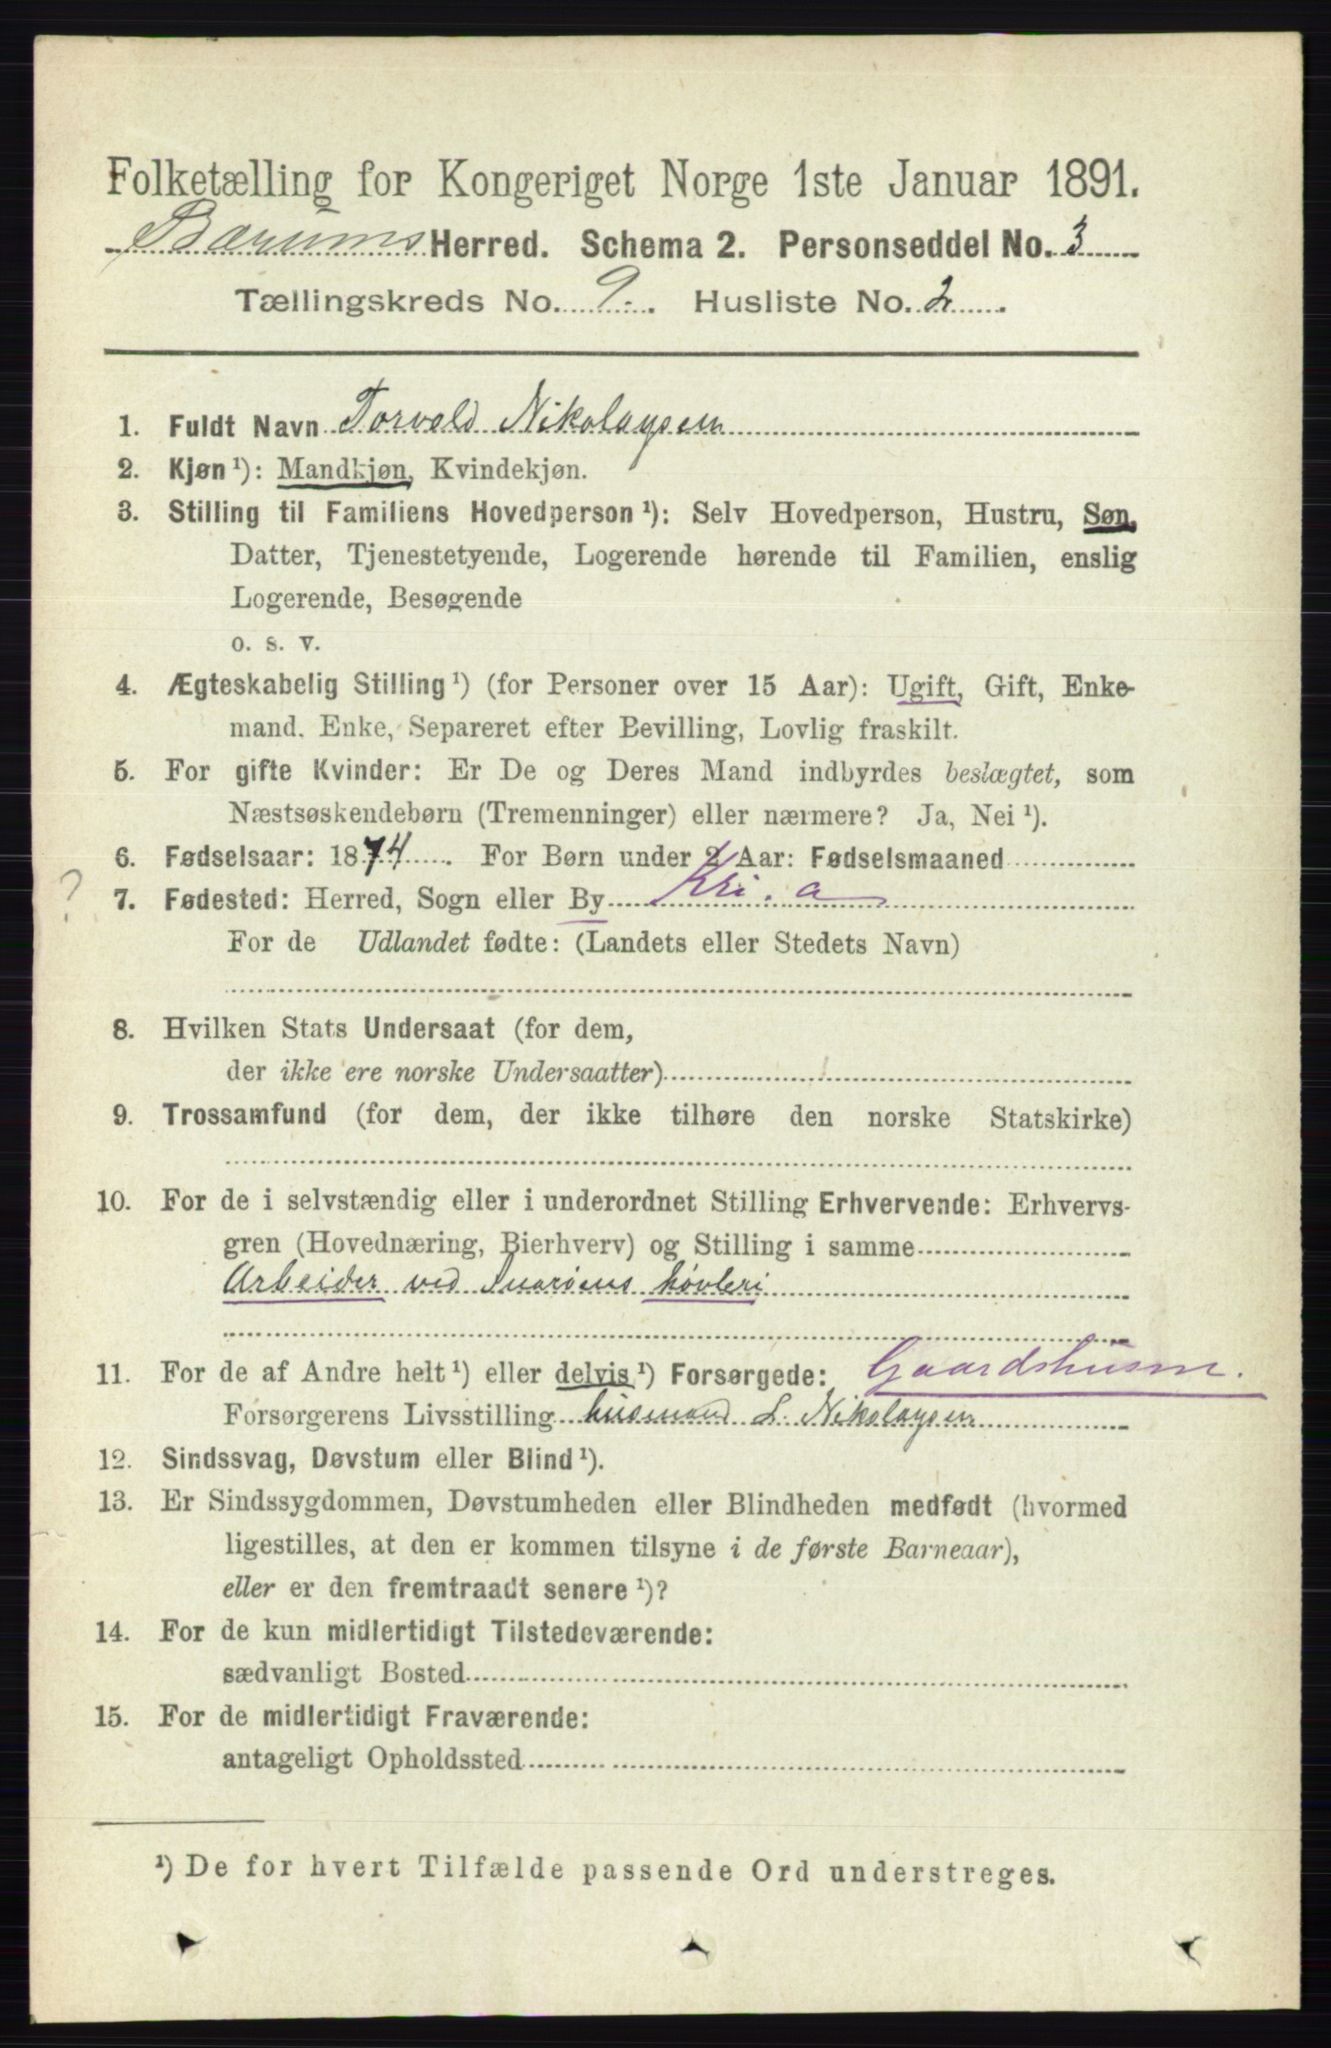 Folketælling for Kongeriget Norge 1ste Januar 1891.
Bærums Herred. Schema 2. Personseddel No. 3
Tællingskreds No. 9. Husliste No. 2.
1. Fuldt Navn Torvald Nikolaysen
2. Kjøn ¹): Mandkjøn, Kvindekjøn.
3. Stilling til Familiens Hovedperson ¹): Selv Hovedperson, Hustru, Søn,
Datter, Tjenestetyende, Logerende hørende til Familien, enslig
Logerende, Besøgende
o. s. v.
4. Ægteskabelig Stilling ¹) (for Personer over 15 Aar): Ugift, Gift, Enke-
mand, Enke, Separeret efter Bevilling, Lovlig fraskilt.
5. For gifte Kvinder: Er De og Deres Mand indbyrdes beslægtet, som
Næstsøskendebørn (Tremenninger) eller nærmere? Ja, Nei ¹).
6. Fødselsaar: 1874. For Børn under 2 Aar: Fødselsmaaned
? 7. Fødested: Herred, Sogn eller By Kri.a
For de Udlandet fødte: (Landets eller Stedets Navn)
8. Hvilken Stats Undersaat (for dem,
der ikke ere norske Undersaatter)
9. Trossamfund (for dem, der ikke tilhøre den norske Statskirke)
10. For de i selvstændig eller i underordnet Stilling Erhvervende: Erhvervs-
gren (Hovednæring, Bierhverv) og Stilling i samme
Arbeider ved Snarøens høvleri
11. For de af Andre helt ¹) eller delvis ¹) Forsørgede: Gaardshusm.
Forsørgerens Livsstilling husmand L. Nikolaysen
12. Sindssvag, Døvstum eller Blind ¹).
13. Er Sindssygdommen, Døvstumheden eller Blindheden medfødt (hvormed
ligestilles, at den er kommen tilsyne i de første Barneaar),
eller er den fremtraadt senere ¹)?
14. For de kun midlertidigt Tilstedeværende:
sædvanligt Bosted
15. For de midlertidigt Fraværende:
antageligt Opholdssted
¹) De for hvert Tilfælde passende Ord understreges.